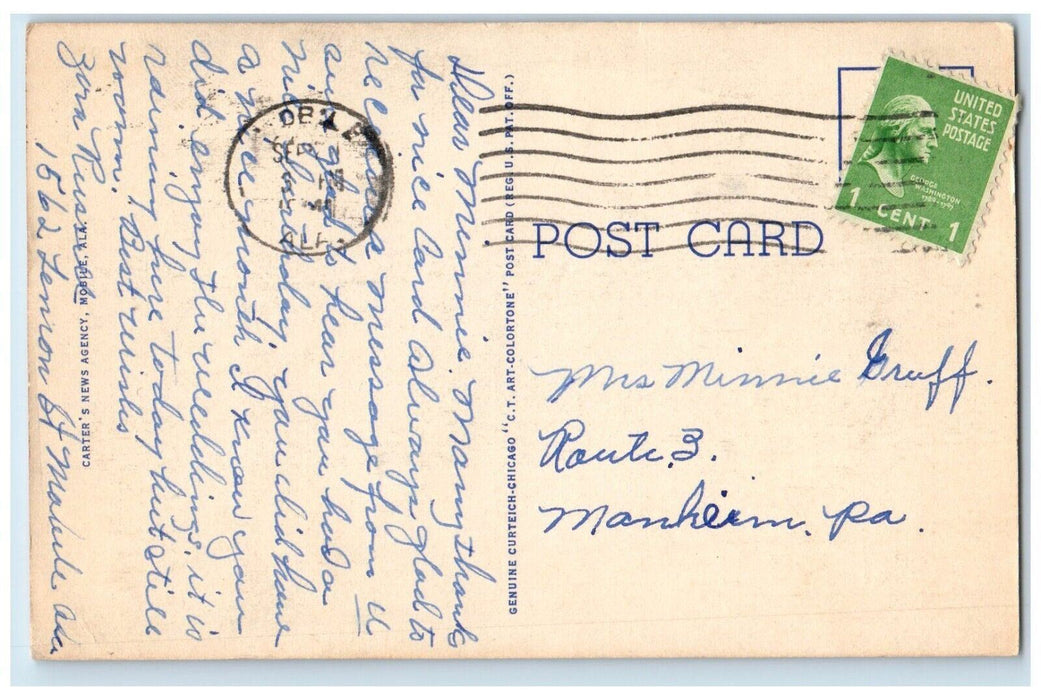 Dear Minnie. Many thanks
for nice card Always glad to
receive a message from U
and glad to hear you had a
nice birthday, you did have
a nice month I know you
did enjoy the weddings, it is
raining here today but still
warm. Best wishes
1562 Lemon St Mobile Ala
CARTER'S NEWS AGENCY, MOBILE, ALA.
GENUINE CURTEICH-CHICAGO "C.T. ART-COLORTONE" POST CARD (REG. U.S. PAT. OFF.)
SEP
ALA
POST CARD
UNITED
STATES
POSTAGE
GEORGE
WASHINGTON
1789-1797
1 CENT 1
Mrs Minnie Gruff.
Route 3.
Manheim, Pa.